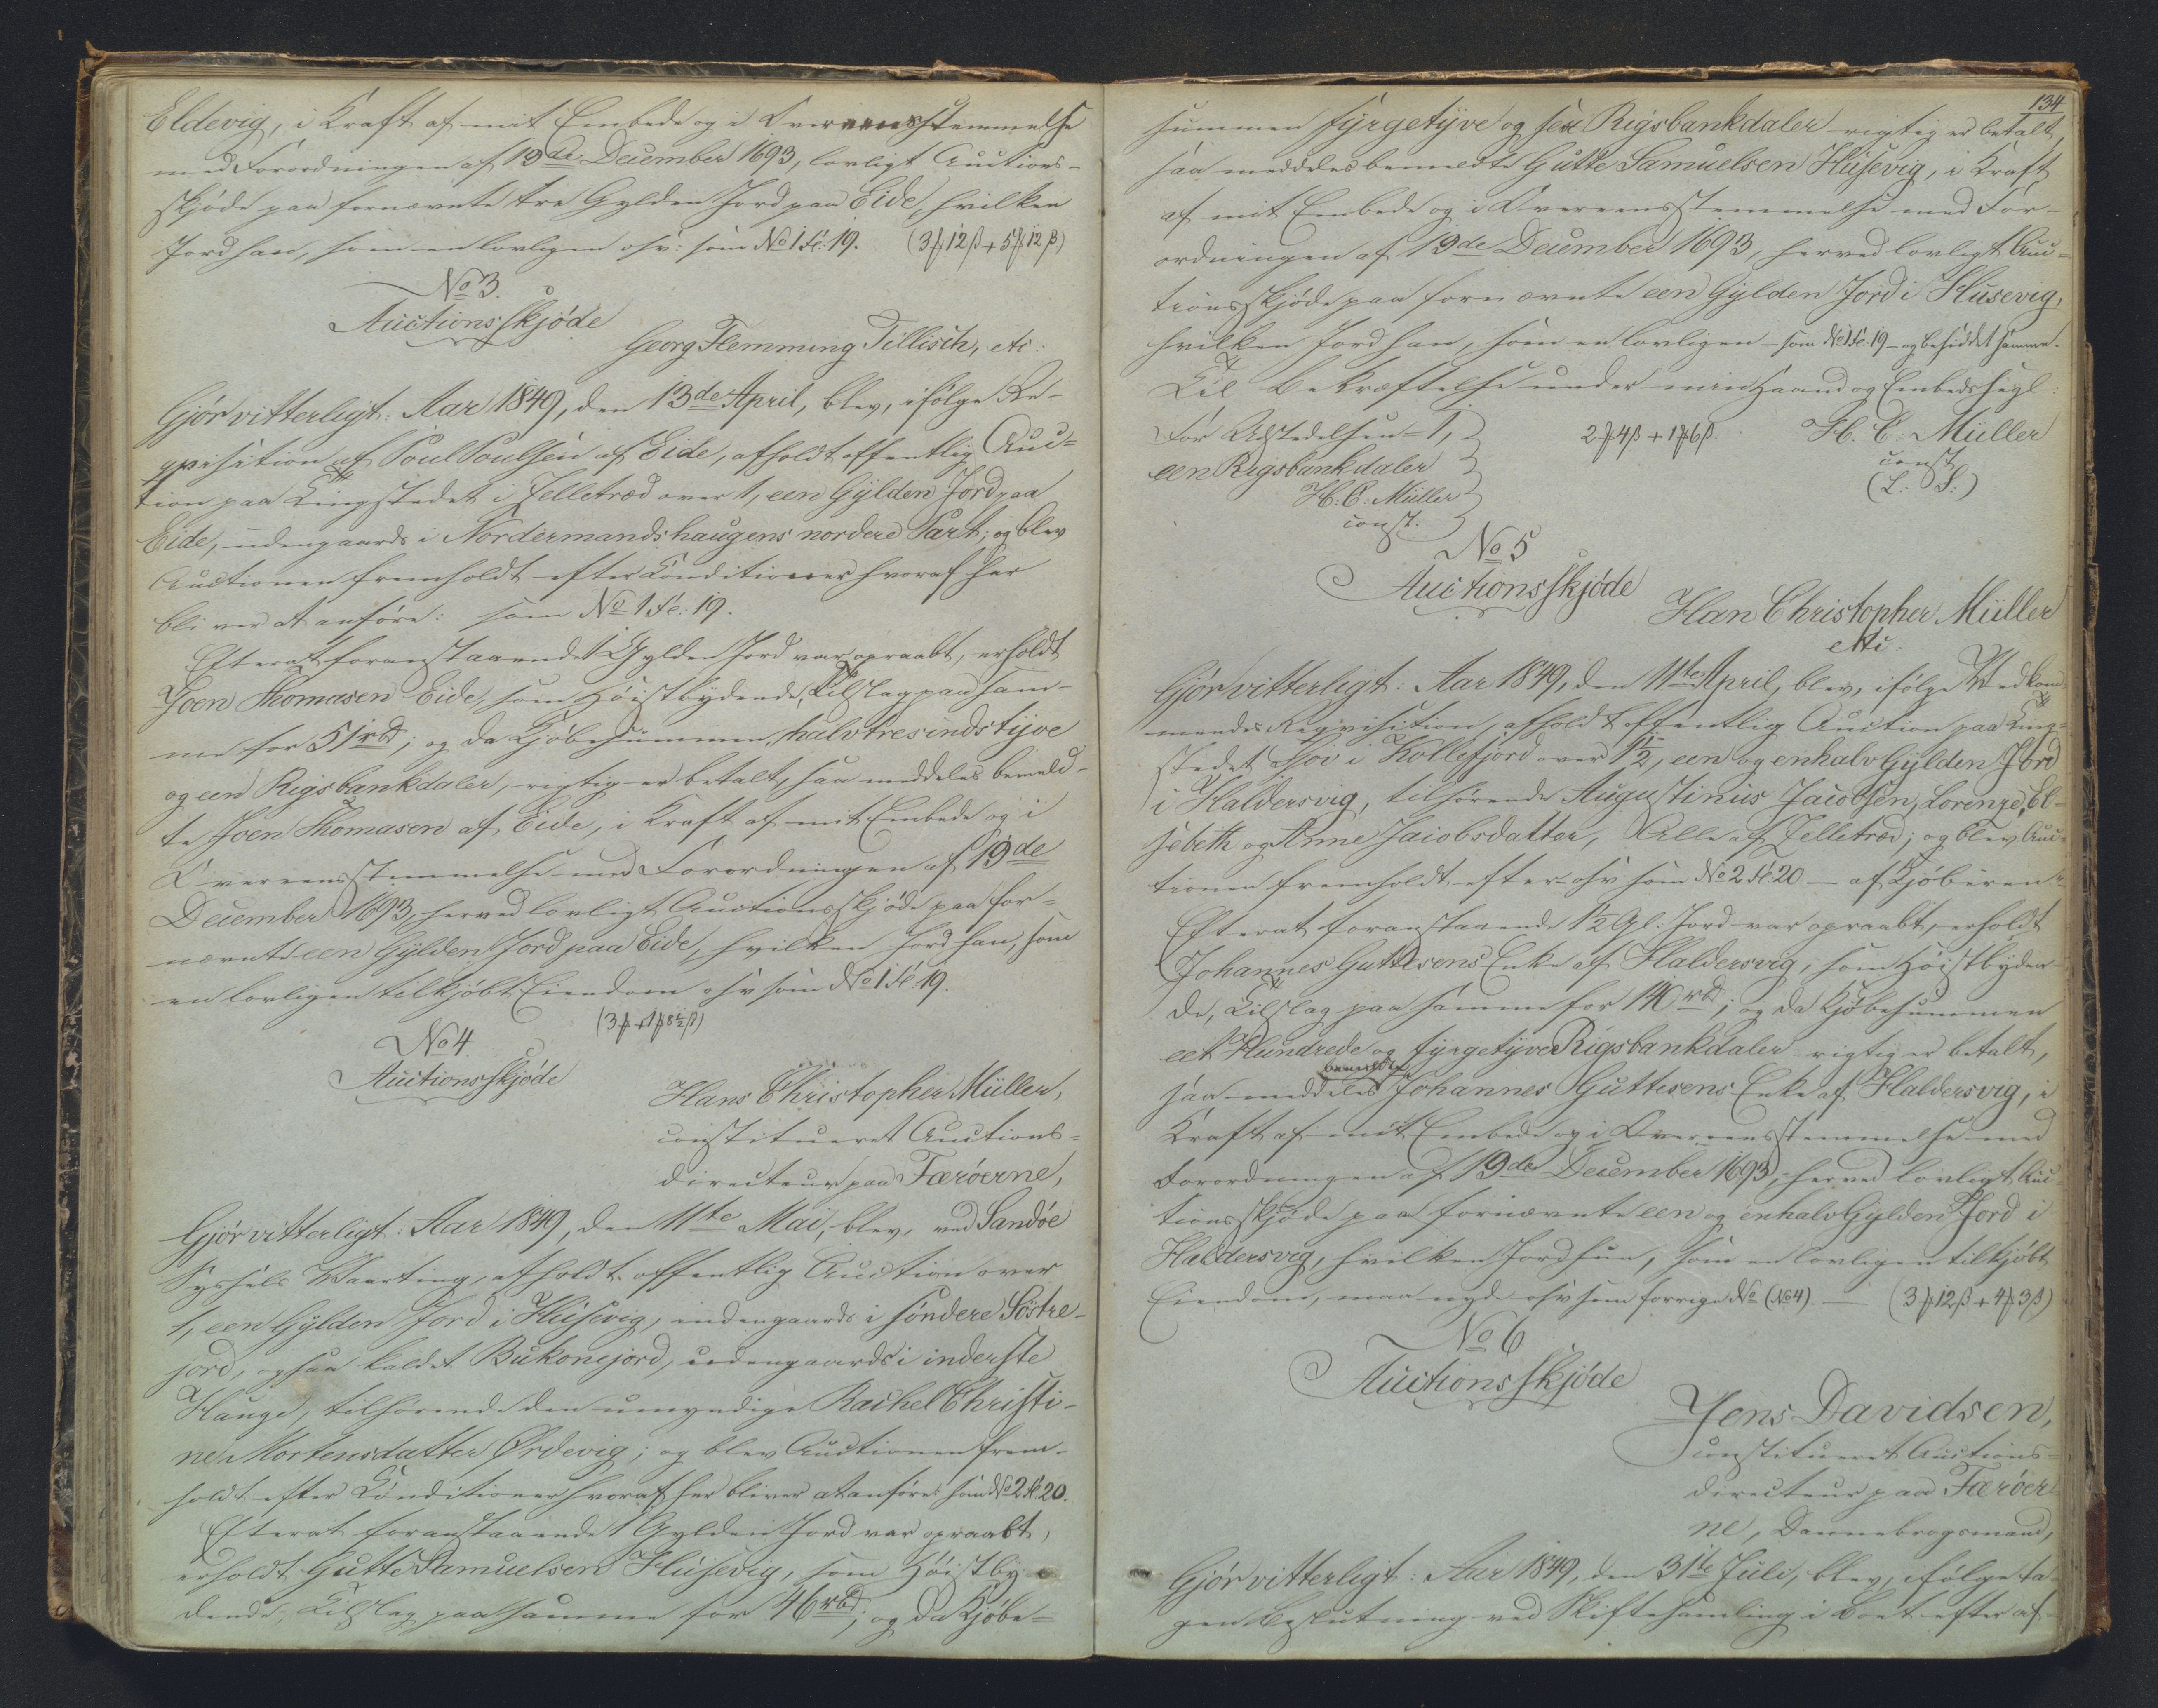 Eldevig, i Kraft af mit Embede og i Overeensstemmelse
med Forordningen af 19de December 1693, lovligt Auctions-
skjøde paa fornævnte tre Gylden Jord paa Eide, hvilken
Jord han, som en lovligen osv: som No 1 Fo: 19. (3ƒ 12ß + 5ƒ 12ß)
No 3.
Auctionsskjøde
Georg Flemming Tillisch, etc:
Gjør vitterligt: Aar 1849, den 13de April, blev, ifølge Re-
qvisition af Poul Poulsen af Eide, afholdt offentlig Auc-
tion paa Tingstedet i Zelletræd over 1, een Gylden Jord paa
Eide, udengaards i Nordermandshaugens nordere Part; og blev
Auctionen fremholdt efter Conditioner hvoraf her
bliver at anføre: som No 1 Fo: 19.
Efterat foranstaaende 1 Gylden Jord var opraabt, erholdt
Joen Thomasen Eide, som Høistbydende, Tilslag paa sam-
me for 51 rbd; og da Kjøbesummen, halvtresindstyve
og een Rigsbankdaler, rigtig er betalt, saa meddeles bemeld-
te Joen Thomasen af Eide, i Kraft af mit Embede og i
Overeensstemmelse med Forordningen af 19de
December 1693, herved lovligt Auctionsskjøde paa for-
nævnte een Gylden Jord paa Eide, hvilken Jord han, som
en lovligen tilkjøbt Eiendom osv som No 1 Fo 19.
(3ƒ + 1ƒ 8½ß)
No 4
Auctionsskjøde
Hans Christopher Müller,
constitueret Auctions-
directeur paa Færøerne,
Gjør vitterligt: Aar 1849, den 11te Mai, blev, ved Sandøe
Syssels Vaarting, afholdt offentlig Auction over
1, een Gylden Jord i Husevig, indengaards i søndere Søstre-
jord, ogsaa kaldet Bukonejord, udengaards i inderste
Hauge, tilhørende den umyndige Rachel Christi-
ne Mortensdatter Ørdevig; og blev Auctionen frem-
holdt efter Conditioner hvoraf her bliver at anføre: som No 2 Fo 20.
Efterat foranstaaende 1 Gylden Jord var opraabt,
erholdt Gutte Samuelsen Husevig, som Høistby-
dende, Tilslag paa samme for 46 rbd; og da Kjøbe-
134
summen fyrgetyve og sex Rigsbankdaler rigtig er betalt,
saa meddeles bemeldte Gutte Samuelsen Husevig, i Kraft
af mit Embede og i Overeensstemmelse med For-
ordningen af 19de December 1693, herved lovligt Auc-
tionsskjøde paa fornævnte een Gylden Jord i Husevig,
hvilken Jord han, som en lovligen – som No 1 Fo: 19 – og besiddet samme.
Til Bekræftelse under min Haand og Embedssegl:
For Udstedelsen 1,
een Rigsbankdaler
H. C. Müller
const.
2ƒ 4ß + 1ƒ 6ß.
H. C. Müller
const
(L. S.)
No 5
Auctionsskjøde
Han Christopher Müller
etc.
Gjør vitterligt: Aar 1849, den 11te April, blev, ifølge Vedkom-
mendes Reqvisition, afholdt offentlig Auction paa Ting-
stedet Sjov i Kollefjord over 1½, een og enhalv Gylden Jord
i Haldersvig, tilhørende Augustinus Jacobsen, Lorenze, El-
sebeth og Anne Jacobsdatter, Alle af Zelletræd; og blev Auc-
tionen fremholdt efter osv som No 2 Fo 20 – af Kjøberen
Efterat foranstaaende 1½ Gl. Jord var opraabt, erholdt
Johannes Guttesens Enke af Haldersvig, som Høistbyden-
de, Tilslag paa samme for 140 rbd; og da Kjøbesummen
eet Hundrede og fyrgetyve Rigsbankdaler rigtig er betalt,
saa meddeles bemeldte Johannes Guttesens Enke af Haldersvig, i
Kraft af mit Embede og i Overeensstemmelse med
Forordningen af 19de December 1693, herved lovligt Auc-
tionsskjøde paa fornævnte een og enhalv Gylden Jord i
Haldersvig, hvilken Jord hun, som en lovligen tilkjøbt
Eiendom, maa nyde osv som forrige No (No 4). – (3ƒ 12ß + 4ƒ 3ß)
No 6
Auctionsskjøde
Jens Davidsen,
constitueret Auctions-
directeur paa Færøer-
ne, Dannebrogsmand,
Gjør vitterligt: Aar 1849, den 31te Juli, blev, ifølge ta-
gen Beslutning ved Skiftesamling i Boet efter af-